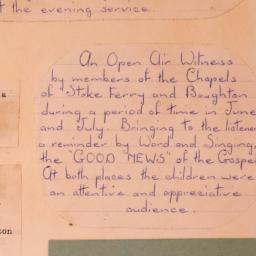 t the evening service.
An Open Air Witness
by members of the Chapels
of Stoke Ferry and Boughton
during a period of time in June
and July. Bringing to the listener
a reminder by Word and Singing,
the "GOOD NEWS" of the Gospel
At both places the children were
an attentive and appreciative
audience.